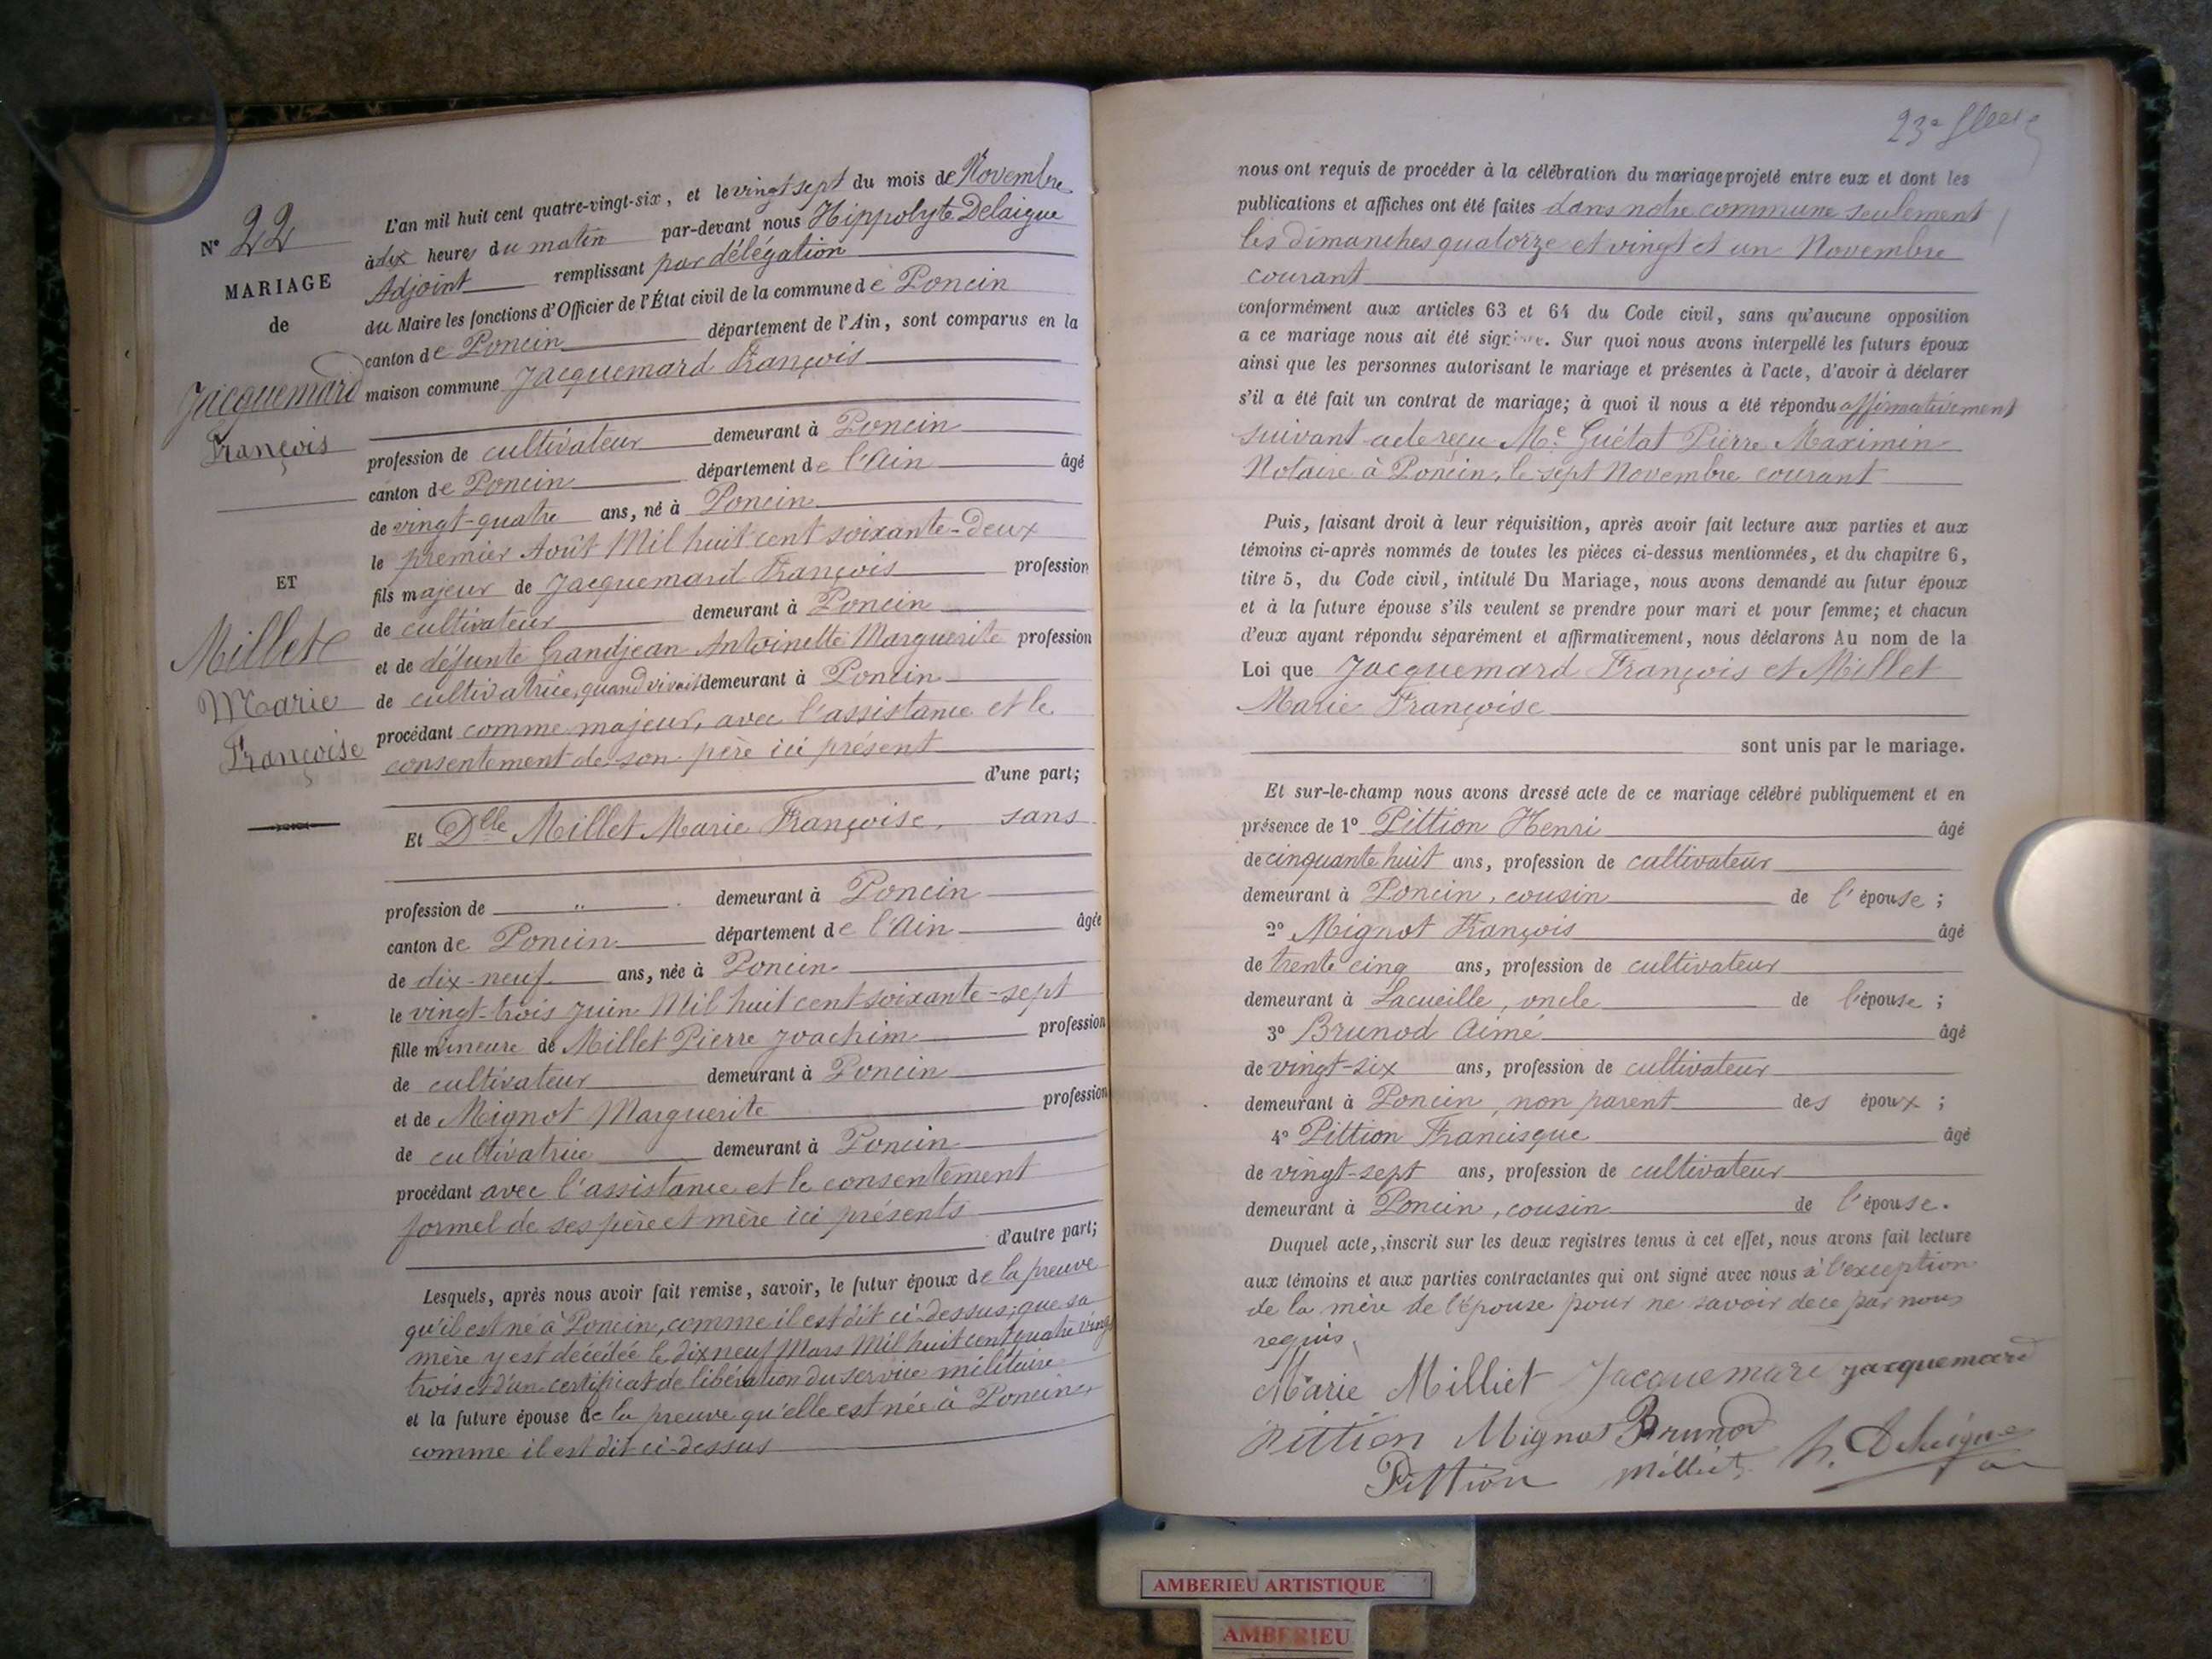 N° 22
MARIAGE
de
Jacquemard
François
ET
Millet
Marie
Françoise
L'an mil huit cent quatre-vingt-six, et le vingt sept du mois de Novembre
à dix heures du matin par-devant nous Hippolyte Delaigue
Adjoint remplissant par délégation
du Maire les fonctions d'Officier de l'État civil de la commune de Poncin
canton de Poncin département de l'Ain, sont comparus en la
maison commune Jacquemard François
profession de cultivateur demeurant à Poncin
canton de Poncin département de l'Ain âgé
de vingt-quatre ans, né à Poncin
le premier Août Mil huit cent soixante-deux
fils majeur de Jacquemard François profession
de cultivateur demeurant à Poncin
et de défunte Grandjean Antoinette Marguerite profession
de cultivatrice, quand vivait demeurant à Poncin
procédant comme majeur, avec l'assistance et le
consentement de son père ici présent
d'une part;
Et Dlle Millet Marie Françoise, sans
profession de " demeurant à Poncin
canton de Poncin département de l'Ain âgée
de dix-neuf ans, née à Poncin
le vingt-trois Juin Mil huit cent soixante-sept
fille mineure de Millet Pierre Joachim profession
de cultivateur demeurant à Poncin
et de Mignot Marguerite profession
de cultivatrice demeurant à Poncin
procédant avec l'assistance et le consentement
formel de ses père et mère ici présents
d'autre part;
Lesquels, après nous avoir fait remise, savoir, le futur époux de la preuve
qu'il est né à Poncin, comme il est dit ci-dessus; que sa
mère y est décédée le dix neuf Mars Mil huit cent quatre vingt
trois et d'un certificat de libération du service militaire
et la future épouse de la preuve qu'elle est née à Poncin,
comme il est dit ci-dessus
nous ont requis de procéder à la célébration du mariage projeté entre eux et dont les
publications et affiches ont été faites dans notre commune seulement
les dimanches quatorze et vingt et un Novembre
courant
conformément aux articles 63 et 64 du Code civil, sans qu'aucune opposition
a ce mariage nous ait été signifiée. Sur quoi nous avons interpellé les futurs époux
ainsi que les personnes autorisant le mariage et présentes à l'acte, d'avoir à déclarer
s'il a été fait un contrat de mariage; à quoi il nous a été répondu affirmativement
suivant acte reçu Me Guétat Pierre Maximin
Notaire à Poncin, le sept Novembre courant
Puis, faisant droit à leur réquisition, après avoir fait lecture aux parties et aux
témoins ci-après nommés de toutes les pièces ci-dessus mentionnées, et du chapitre 6,
titre 5, du Code civil, intitulé Du Mariage, nous avons demandé au futur époux
et à la future épouse s'ils veulent se prendre pour mari et pour femme; et chacun
d'eux ayant répondu séparément et affirmativement, nous déclarons Au nom de la
Loi que Jacquemard François et Millet
Marie Françoise
sont unis par le mariage.
Et sur-le-champ nous avons dressé acte de ce mariage célébré publiquement et en
présence de 1° Pittion Henri âgé
de cinquante huit ans, profession de cultivateur
demeurant à Poncin, cousin de l'épouse;
2° Mignot François âgé
de trente cinq ans, profession de cultivateur
demeurant à Lacueille, oncle de l'épouse;
3° Brunod Aimé âgé
de vingt-six ans, profession de cultivateur
demeurant à Poncin, non parent des époux;
4° Pittion Francisque âgé
de vingt-sept ans, profession de cultivateur
demeurant à Poncin, cousin de l'épouse.
Duquel acte, inscrit sur les deux registres tenus à cet effet, nous avons fait lecture
aux témoins et aux parties contractantes qui ont signé avec nous à l'exception
de la mère de l'épouse pour ne savoir de ce par nous
requis.
Marie Milliet Jacquemard Jacquemard
Pittion Mignot Brunod
Pittion Milliet h. Delaigue
AMBERIEU ARTISTIQUE
AMBERIEU